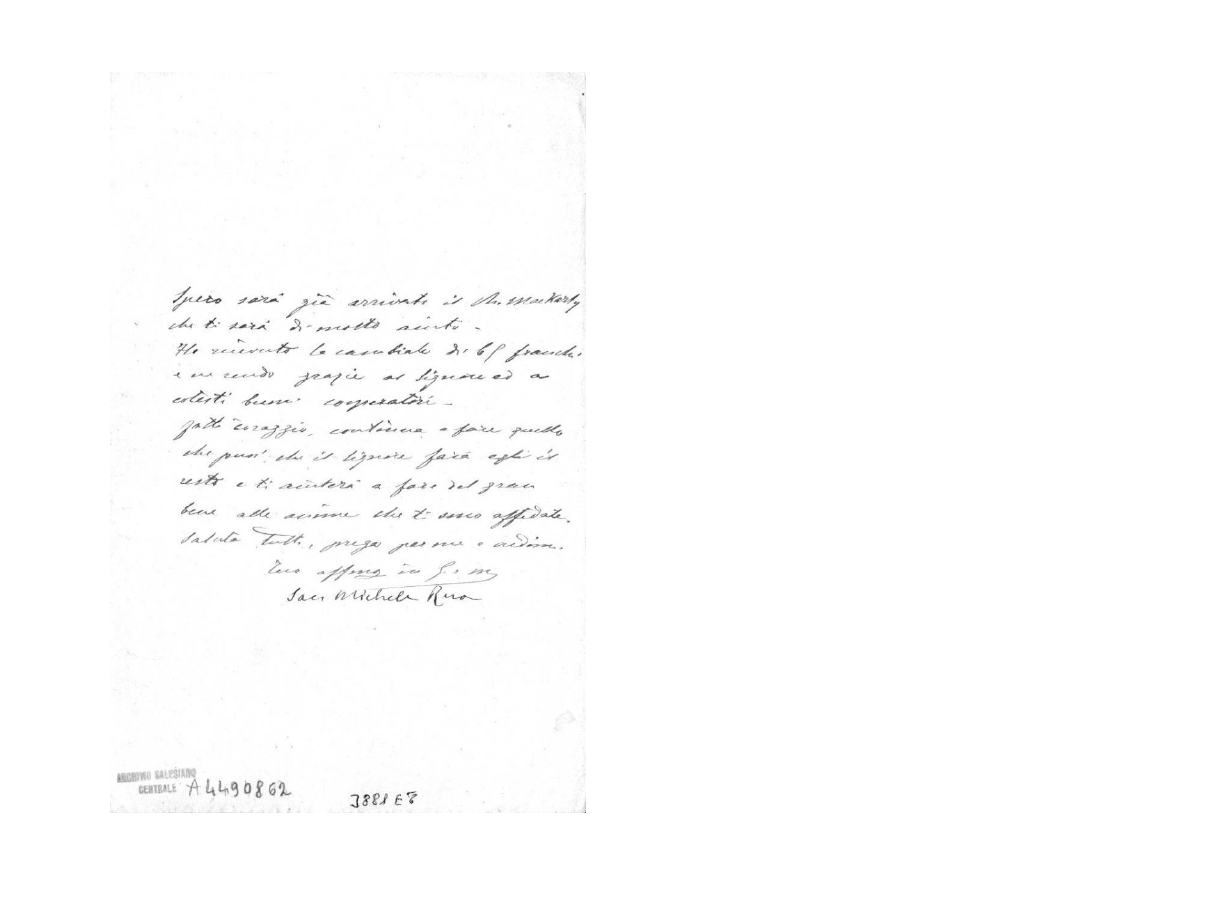 Spero sarà già arrivato il Ch. MacKarty
che ti sarà di molto aiuto -
Ho ricevuto la cambiale di 65 franchi
e ne rendo grazie al Signore ed a
cotesti buoni cooperatori -
fatti coraggio, continua a fare quello
che puoi che il Signore farà egli il
resto e ti aiuterà a fare del gran
bene alle anime che ti sono affidate.
Saluta tutti, prega per me e
Tuo affmo in G. e M.
Sac. Michele Rua
ARCHIVIO SALESIANO
CENTRALE A4490862
3881 E8